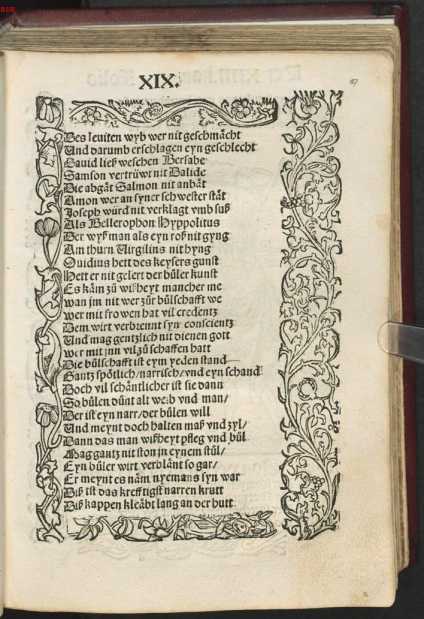 XIX.
Des leuiten wyb wer nit geschmächt
Und darumb erschlagen eyn geschlecht
Dauid ließ weschen Bersabe
Samson vertrüwt nit Dalide
Die abgät Salmon nit anbät
Amon wer an syner schwester stät
Joseph würd nit verklagt vmb suß
Als Bellerophon Hyppolitus
Der wyß man als eyn roß nit gyng
Am thurn Uirgilius nit hyng
Ouidius hett des keysers gunst
Hett er nit gelert der büler kunst
Es käm zü wißheyt mancher me
wan jm nit wer zür bülschafft we
wer mit frowen hat vil credentz
Dem wirt verbrennt syn conscientz
Und mag gentzlich nit dienen gott
wer mit jnn vil zü schaffen hatt
Die bülschafft ist eym yeden stand
Gantz spötlich/narrisch/vnd eyn schand
Doch vil schäntlicher ist sie dann
So bülen dünt alt weib vnd man/
Der ist eyn narr/der bülen will
Und meynt doch halten maß vnd zyl/
Dann das man wißheyt pfleg vnd bül
Mag gantz nit ston jn eynem stül/
Eyn büler wirt verblänt so gar/
Er meynt es näm nyemans syn war
Diß ist das krefftigst narren krutt
Diß kappen kleäbt lang an der hutt